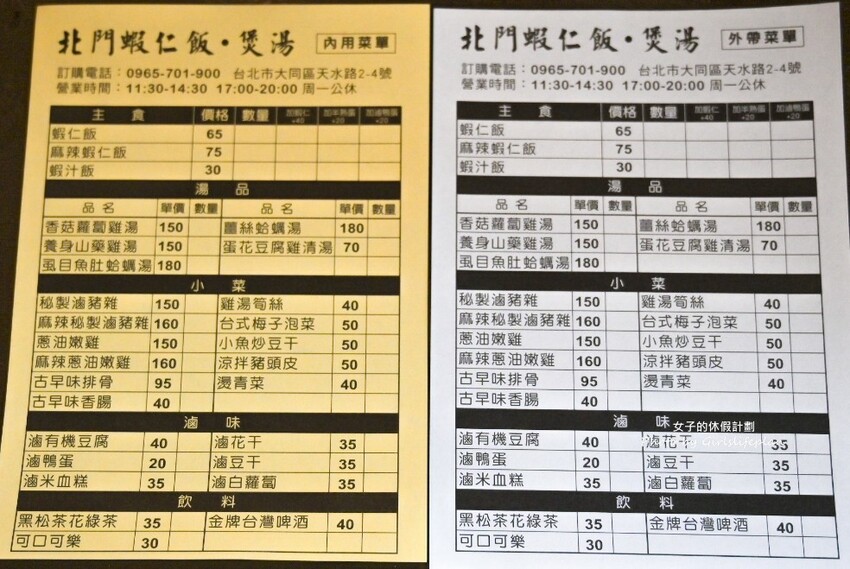 北門蝦仁飯・煲湯 內用菜單
訂購電話：0965-701-900 台北市大同區天水路2-4號
營業時間：11:30-14:30 17:00-20:00 周一公休
主 食 價格 數量 加蝦仁+40 加半熟蛋+20 加滷鴨蛋+20
蝦仁飯 65
麻辣蝦仁飯 75
蝦汁飯 30
湯 品
品 名 單價 數量 品 名 單價 數量
香菇蘿蔔雞湯 150 薑絲蛤蠣湯 180
養身山藥雞湯 150 蛋花豆腐雞清湯 70
虱目魚肚蛤蠣湯 180
小 菜
秘製滷豬雜 150 雞湯筍絲 40
麻辣秘製滷豬雜 160 台式梅子泡菜 50
蔥油嫩雞 150 小魚炒豆干 50
麻辣蔥油嫩雞 160 涼拌豬頭皮 50
古早味排骨 95 燙青菜 40
古早味香腸 40
滷 味
滷有機豆腐 40 滷花干 35
滷鴨蛋 20 滷豆干 35
滷米血糕 35 滷白蘿蔔 35
飲 料
黑松茶花綠茶 35 金牌台灣啤酒 40
可口可樂 30
北門蝦仁飯・煲湯 外帶菜單
訂購電話：0965-701-900 台北市大同區天水路2-4號
營業時間：11:30-14:30 17:00-20:00 周一公休
主 食 價格 數量 加蝦仁+40 加半熟蛋+20 加滷鴨蛋+20
蝦仁飯 65
麻辣蝦仁飯 75
蝦汁飯 30
湯 品
品 名 單價 數量 品 名 單價 數量
香菇蘿蔔雞湯 150 薑絲蛤蠣湯 180
養身山藥雞湯 150 蛋花豆腐雞清湯 70
虱目魚肚蛤蠣湯 180
小 菜
秘製滷豬雜 150 雞湯筍絲 40
麻辣秘製滷豬雜 160 台式梅子泡菜 50
蔥油嫩雞 150 小魚炒豆干 50
麻辣蔥油嫩雞 160 涼拌豬頭皮 50
古早味排骨 95 燙青菜 40
古早味香腸 40
滷 味
女子的休假計劃
滷有機豆腐 40 滷花干 35
滷鴨蛋 20 滷豆干 35
滷米血糕 35 滷白蘿蔔 35
飲 料
黑松茶花綠茶 35 金牌台灣啤酒 40
可口可樂 30